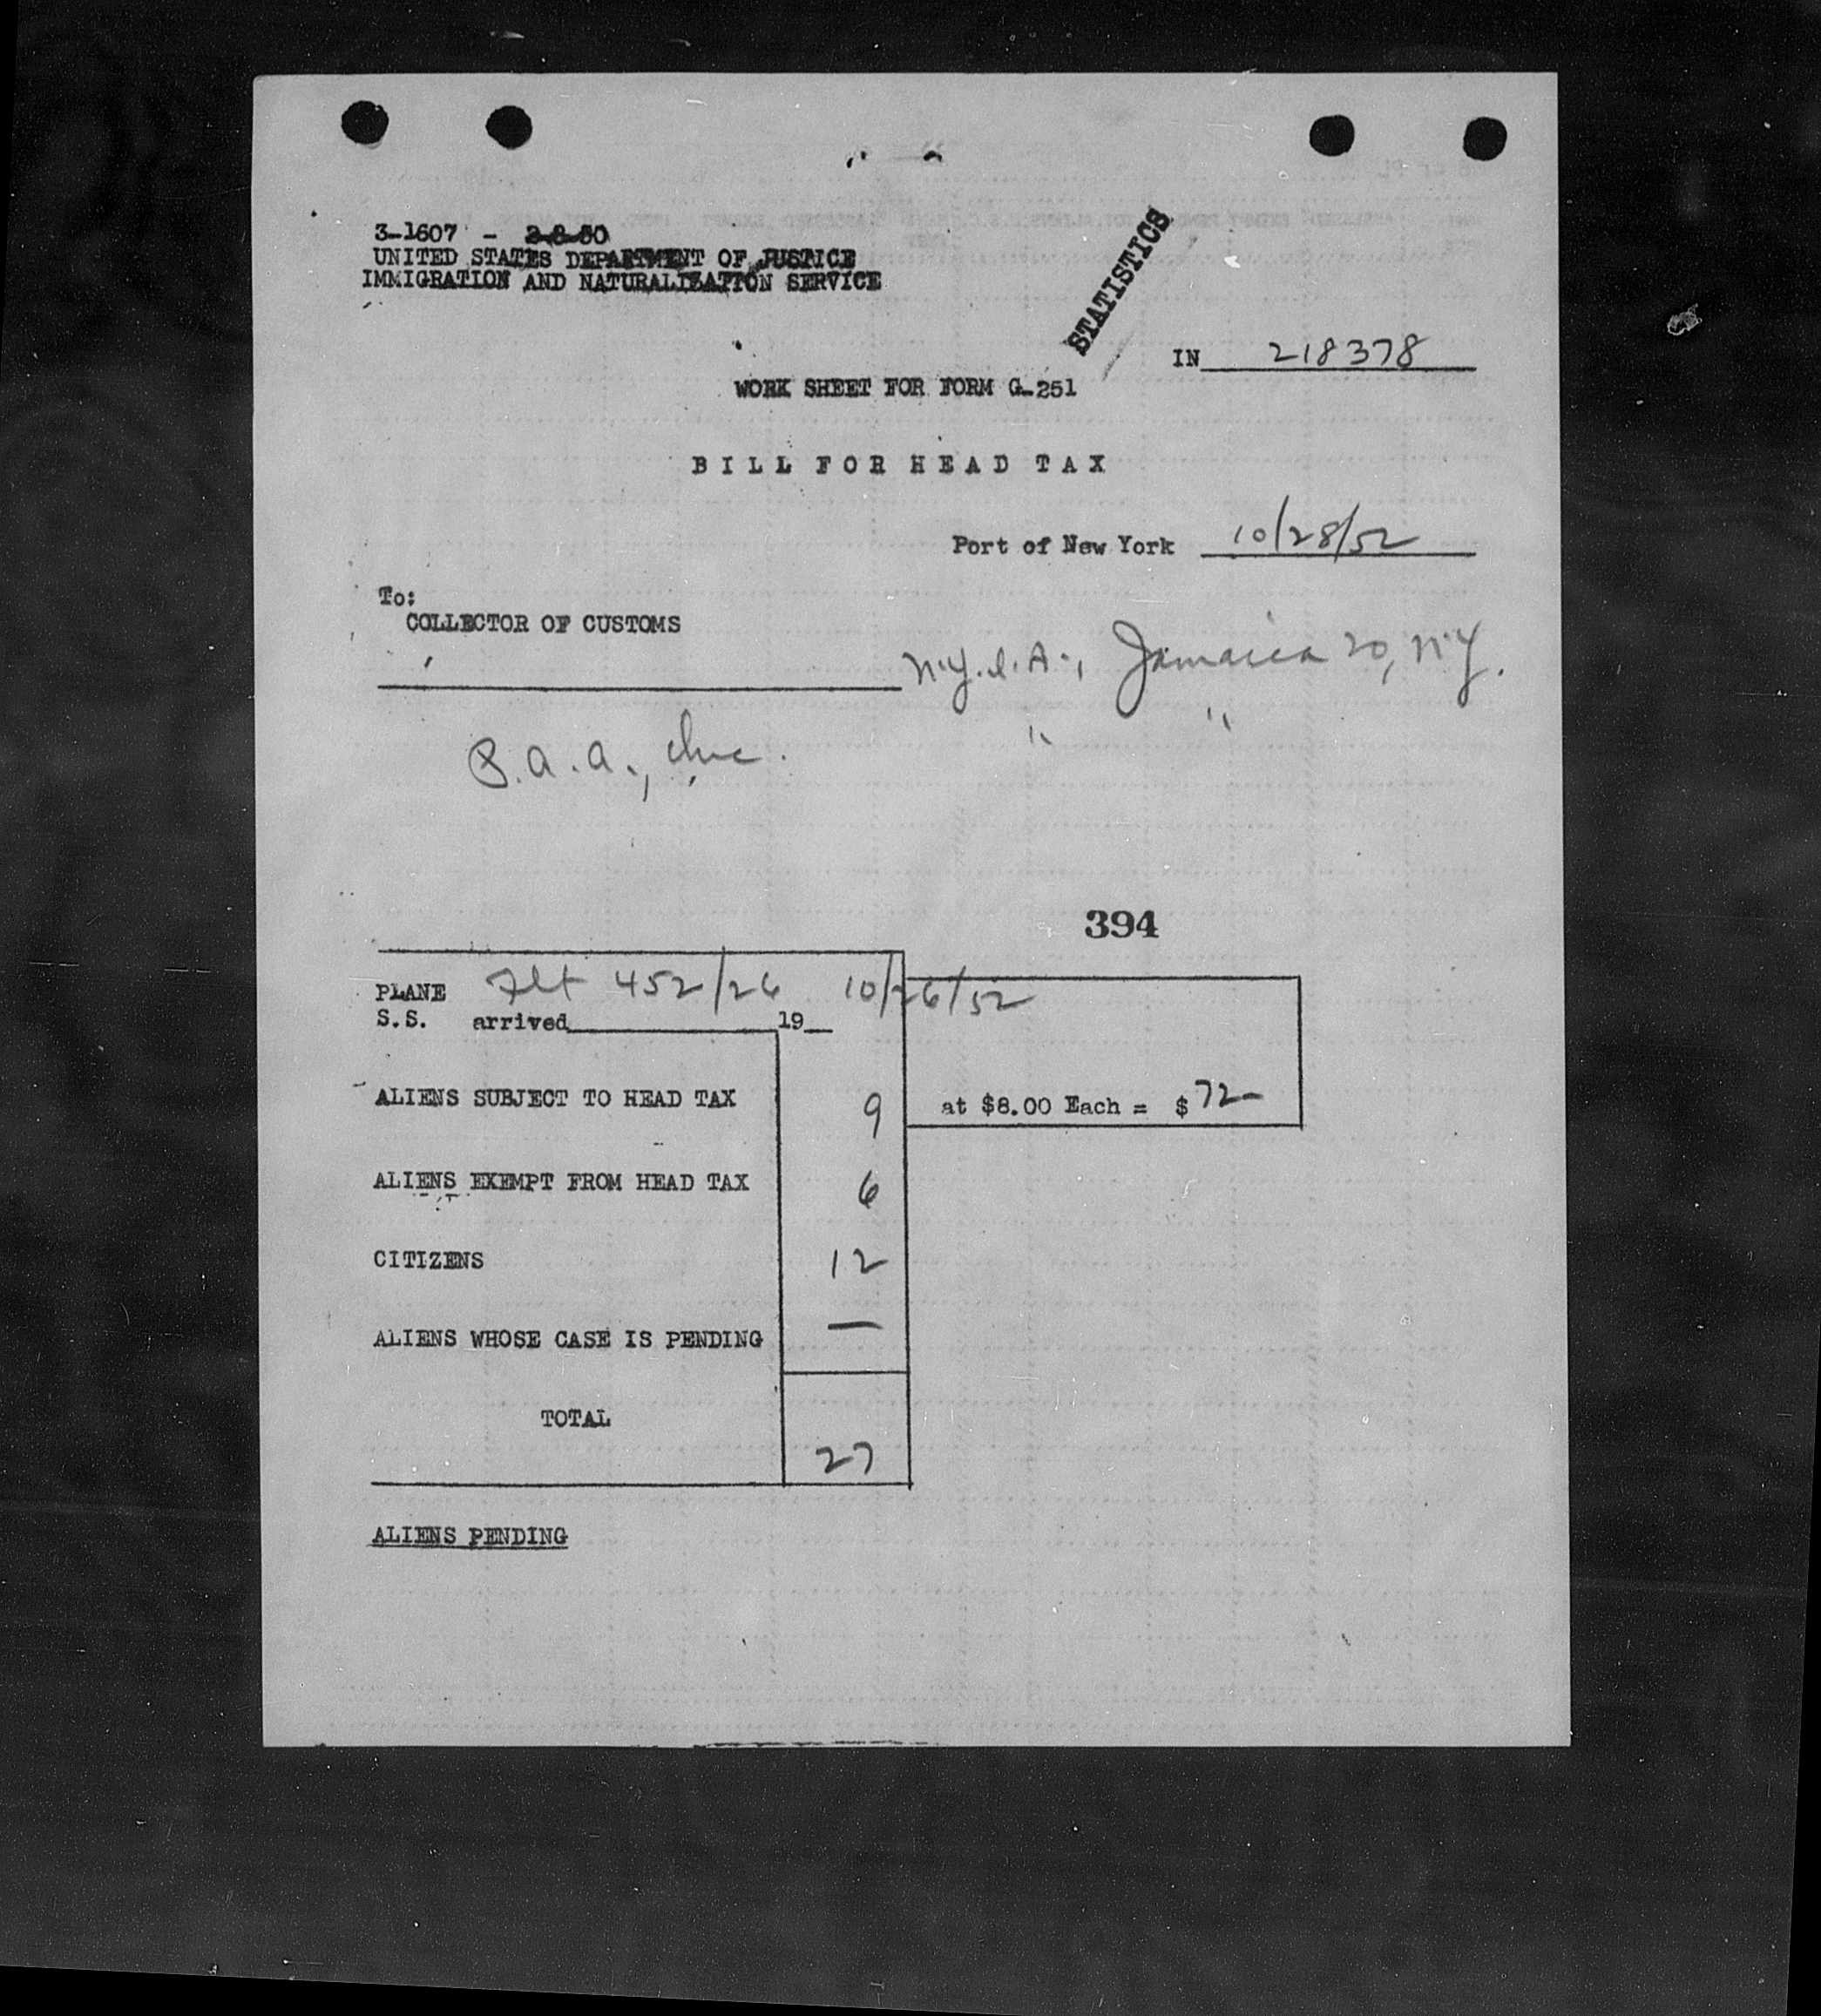 3-1607 - 2-8-50
UNITED STATES DEPARTMENT OF JUSTICE
IMMIGRATION AND NATURALIZATION SERVICE
STATISTICS
IN 218378
WORK SHEET FOR FORM G-251
BILL FOR HEAD TAX
Port of New York 10/28/52
To:
COLLECTOR OF CUSTOMS
N.Y.I.A., Jamaica 20, N.Y.
P.A.A., Inc. " "
394
PLANE Flt 452/26 10/26/52
S.S. arrived 19
ALIENS SUBJECT TO HEAD TAX 9 at $8.00 Each = $ 72-
ALIENS EXEMPT FROM HEAD TAX 6
CITIZENS 12
ALIENS WHOSE CASE IS PENDING —
TOTAL
27
ALIENS PENDING